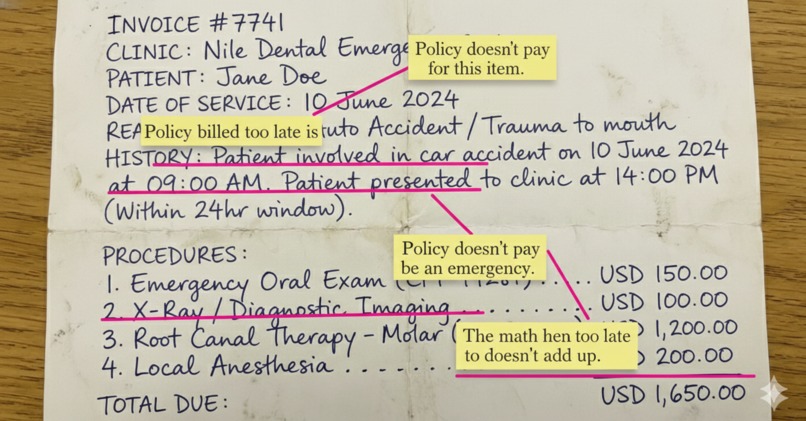 INVOICE #7741
CLINIC: Nile Dental Emerge
Policy doesn't pay
for this item.
PATIENT: Jane Doe
DATE OF SERVICE: 10 June 2024
REA
Policy billed too late is
uto Accident / Trauma to mouth
HISTORY: Patient involved in car accident on 10 June 2024
at 09:00 AM. Patient presented to clinic at 14:00 PM
(Within 24hr window).
Policy doesn't pay
be an emergency.
PROCEDURES:
1. Emergency Oral Exam ..... USD 150.00
2. X-Ray / Diagnostic Imaging .......... USD 100.00
3. Root Canal Therapy - Molar ( 1,200.00
The math hen too late
to doesn't add up.
4. Local Anesthesia ....... 200.00
TOTAL DUE: USD 1,650.00